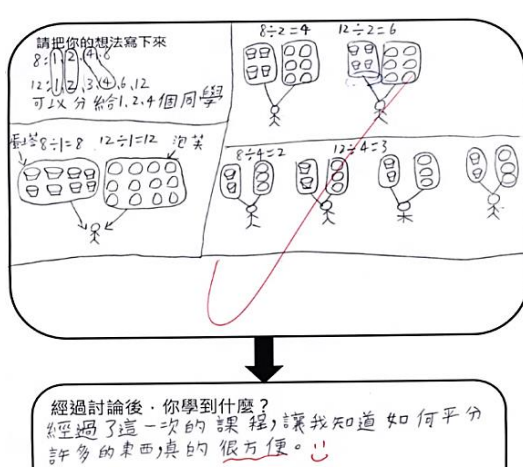 請把你的想法寫下來
8:1,2,4,8
12:1,2,3,4,6,12
可以分給1,2,4個同學
蛋塔8÷1=8 12÷1=12 泡芙
8÷2=4 12÷2=6
8÷4=2 12÷4=3
經過討論後,你學到什麼?
經過了這一次的課程,讓我知道如何平分
許多的東西,真的很方便。